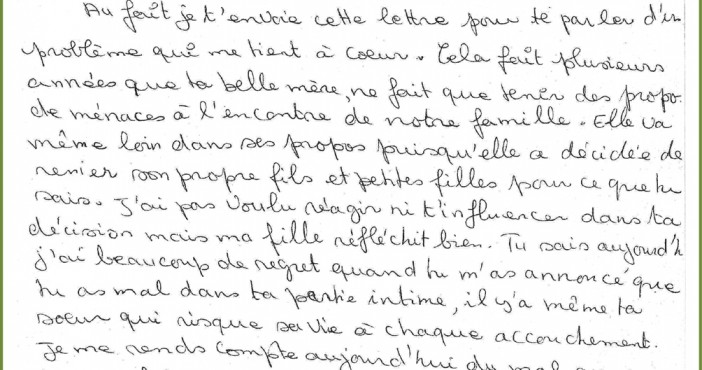 Au faît je t'envoie cette lettre pour te parler d'un
problème qui me tient à coeur. Cela faît plusieurs
années que ta belle mère, ne fait que tenir des propo
de ménaces à l'encontre de notre famille. Elle va
même loin dans ses propos puisqu'elle a décidée de
renier son propre fils et petites filles pour ce que tu
sais. J'ai pas voulu réagir ni t'influencer dans ta
décision mais ma fille réfléchit bien. Tu sais aujourd'h
j'ai beaucoup de régret quand tu m'as annoncé que
tu as mal dans ta partie intime, il y'a même ta
soeur qui risque sa vie à chaque accouchement.
Je me rends compte aujourd'hui du mal